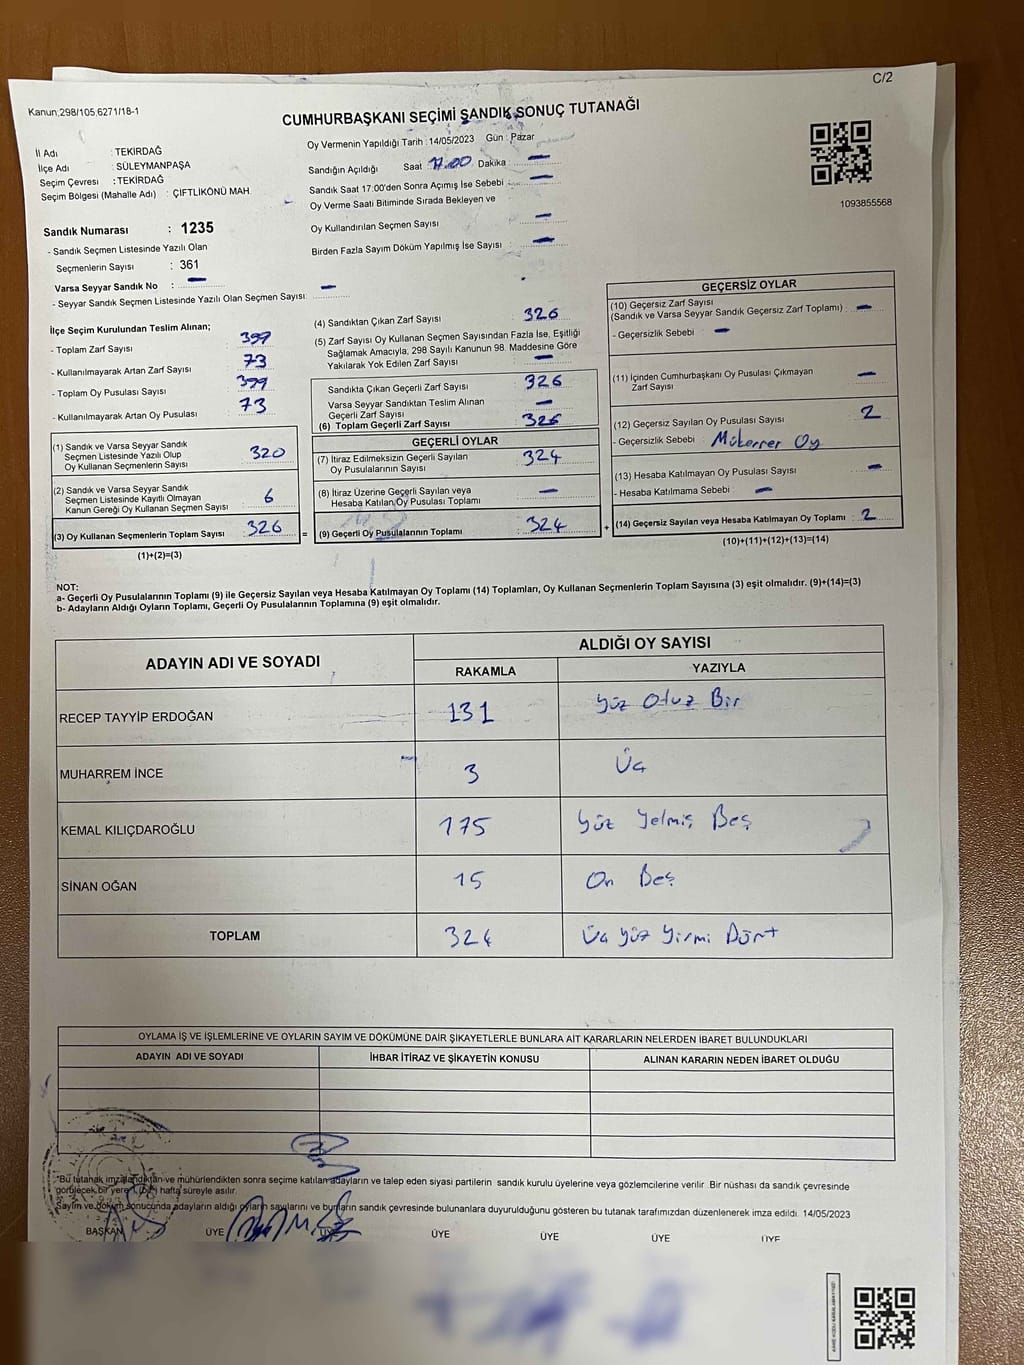 C/2
Kanun,298/105,6271/18-1
CUMHURBAŞKANI SEÇİMİ SANDIK SONUÇ TUTANAĞI
İl Adı : TEKİRDAĞ
İlçe Adı : SÜLEYMANPAŞA
Seçim Çevresi : TEKİRDAĞ
Seçim Bölgesi (Mahalle Adı) : ÇİFTLİKÖNÜ MAH.
Oy Vermenin Yapıldığı Tarih : 14/05/2023 Gün : Pazar
Sandığın Açıldığı Saat 17.00 Dakika —
Sandık Saat 17:00'den Sonra Açımış İse Sebebi : —
Oy Verme Saati Bitiminde Sırada Bekleyen ve
Oy Kullandırılan Seçmen Sayısı —
Birden Fazla Sayım Döküm Yapılmış İse Sayısı : —
1093855568
Sandık Numarası : 1235
- Sandık Seçmen Listesinde Yazılı Olan
Seçmenlerin Sayısı : 361
Varsa Seyyar Sandık No : —
- Seyyar Sandık Seçmen Listesinde Yazılı Olan Seçmen Sayısı: —
İlçe Seçim Kurulundan Teslim Alınan;
- Toplam Zarf Sayısı 399
- Kullanılmayarak Artan Zarf Sayısı 73
- Toplam Oy Pusulası Sayısı 399
- Kullanılmayarak Artan Oy Pusulası 73
(1) Sandık ve Varsa Seyyar Sandık
Seçmen Listesinde Yazılı Olup
Oy Kullanan Seçmenlerin Sayısı 320
(2) Sandık ve Varsa Seyyar Sandık
Seçmen Listesinde Kayıtlı Olmayan
Kanun Gereği Oy Kullanan Seçmen Sayısı 6
(3) Oy Kullanan Seçmenlerin Toplam Sayısı 326 =
(1)+(2)=(3)
(4) Sandıktan Çıkan Zarf Sayısı 326
(5) Zarf Sayısı Oy Kullanan Seçmen Sayısından Fazla İse, Eşitliği
Sağlamak Amacıyla, 298 Sayılı Kanunun 98. Maddesine Göre
Yakılarak Yok Edilen Zarf Sayısı —
Sandıkta Çıkan Geçerli Zarf Sayısı 326
Varsa Seyyar Sandıktan Teslim Alınan
Geçerli Zarf Sayısı —
(6) Toplam Geçerli Zarf Sayısı 326
GEÇERLİ OYLAR
(7) İtiraz Edilmeksizin Geçerli Sayılan
Oy Pusulalarının Sayısı 324
(8) İtiraz Üzerine Geçerli Sayılan veya
Hesaba Katılan Oy Pusulası Toplamı —
(9) Geçerli Oy Pusulalarının Toplamı 324 +
GEÇERSİZ OYLAR
(10) Geçersiz Zarf Sayısı
(Sandık ve Varsa Seyyar Sandık Geçersiz Zarf Toplamı) : —
- Geçersizlik Sebebi —
(11) İçinden Cumhurbaşkanı Oy Pusulası Çıkmayan
Zarf Sayısı —
(12) Geçersiz Sayılan Oy Pusulası Sayısı : 2
- Geçersizlik Sebebi : Mükerrer Oy
(13) Hesaba Katılmayan Oy Pusulası Sayısı : —
- Hesaba Katılmama Sebebi : —
(14) Geçersiz Sayılan veya Hesaba Katılmayan Oy Toplamı : 2
(10)+(11)+(12)+(13)=(14)
NOT:
a- Geçerli Oy Pusulalarının Toplamı (9) ile Geçersiz Sayılan veya Hesaba Katılmayan Oy Toplamı (14) Toplamları, Oy Kullanan Seçmenlerin Toplam Sayısına (3) eşit olmalıdır. (9)+(14)=(3)
b- Adayların Aldığı Oyların Toplamı, Geçerli Oy Pusulalarının Toplamına (9) eşit olmalıdır.
ADAYIN ADI VE SOYADI
ALDIĞI OY SAYISI
RAKAMLA YAZIYLA
RECEP TAYYİP ERDOĞAN 131 Yüz Otuz Bir
MUHARREM İNCE 3 Üç
KEMAL KILIÇDAROĞLU 175 Yüz Yetmiş Beş
SİNAN OĞAN 15 On Beş
TOPLAM 324 Üç Yüz Yirmi Dört
OYLAMA İŞ VE İŞLEMLERİNE VE OYLARIN SAYIM VE DÖKÜMÜNE DAİR ŞİKAYETLERLE BUNLARA AİT KARARLARIN NELERDEN İBARET BULUNDUKLARI
ADAYIN ADI VE SOYADI İHBAR İTİRAZ VE ŞİKAYETİN KONUSU ALINAN KARARIN NEDEN İBARET OLDUĞU
"Bu tutanak imzalandıktan ve mühürlendikten sonra seçime katılan adayların ve talep eden siyasi partilerin sandık kurulu üyelerine veya gözlemcilerine verilir. Bir nüshası da sandık çevresinde
görülecek bir yere 1 (bir) hafta süreyle asılır.
Sayım ve döküm sonucunda adayların aldığı oyların sayılarını ve bunların sandık çevresinde bulunanlara duyurulduğunu gösteren bu tutanak tarafımızdan düzenlenerek imza edildi. 14/05/2023
BAŞKAN ÜYE ÜYE ÜYE ÜYE ÜYE ÜYE